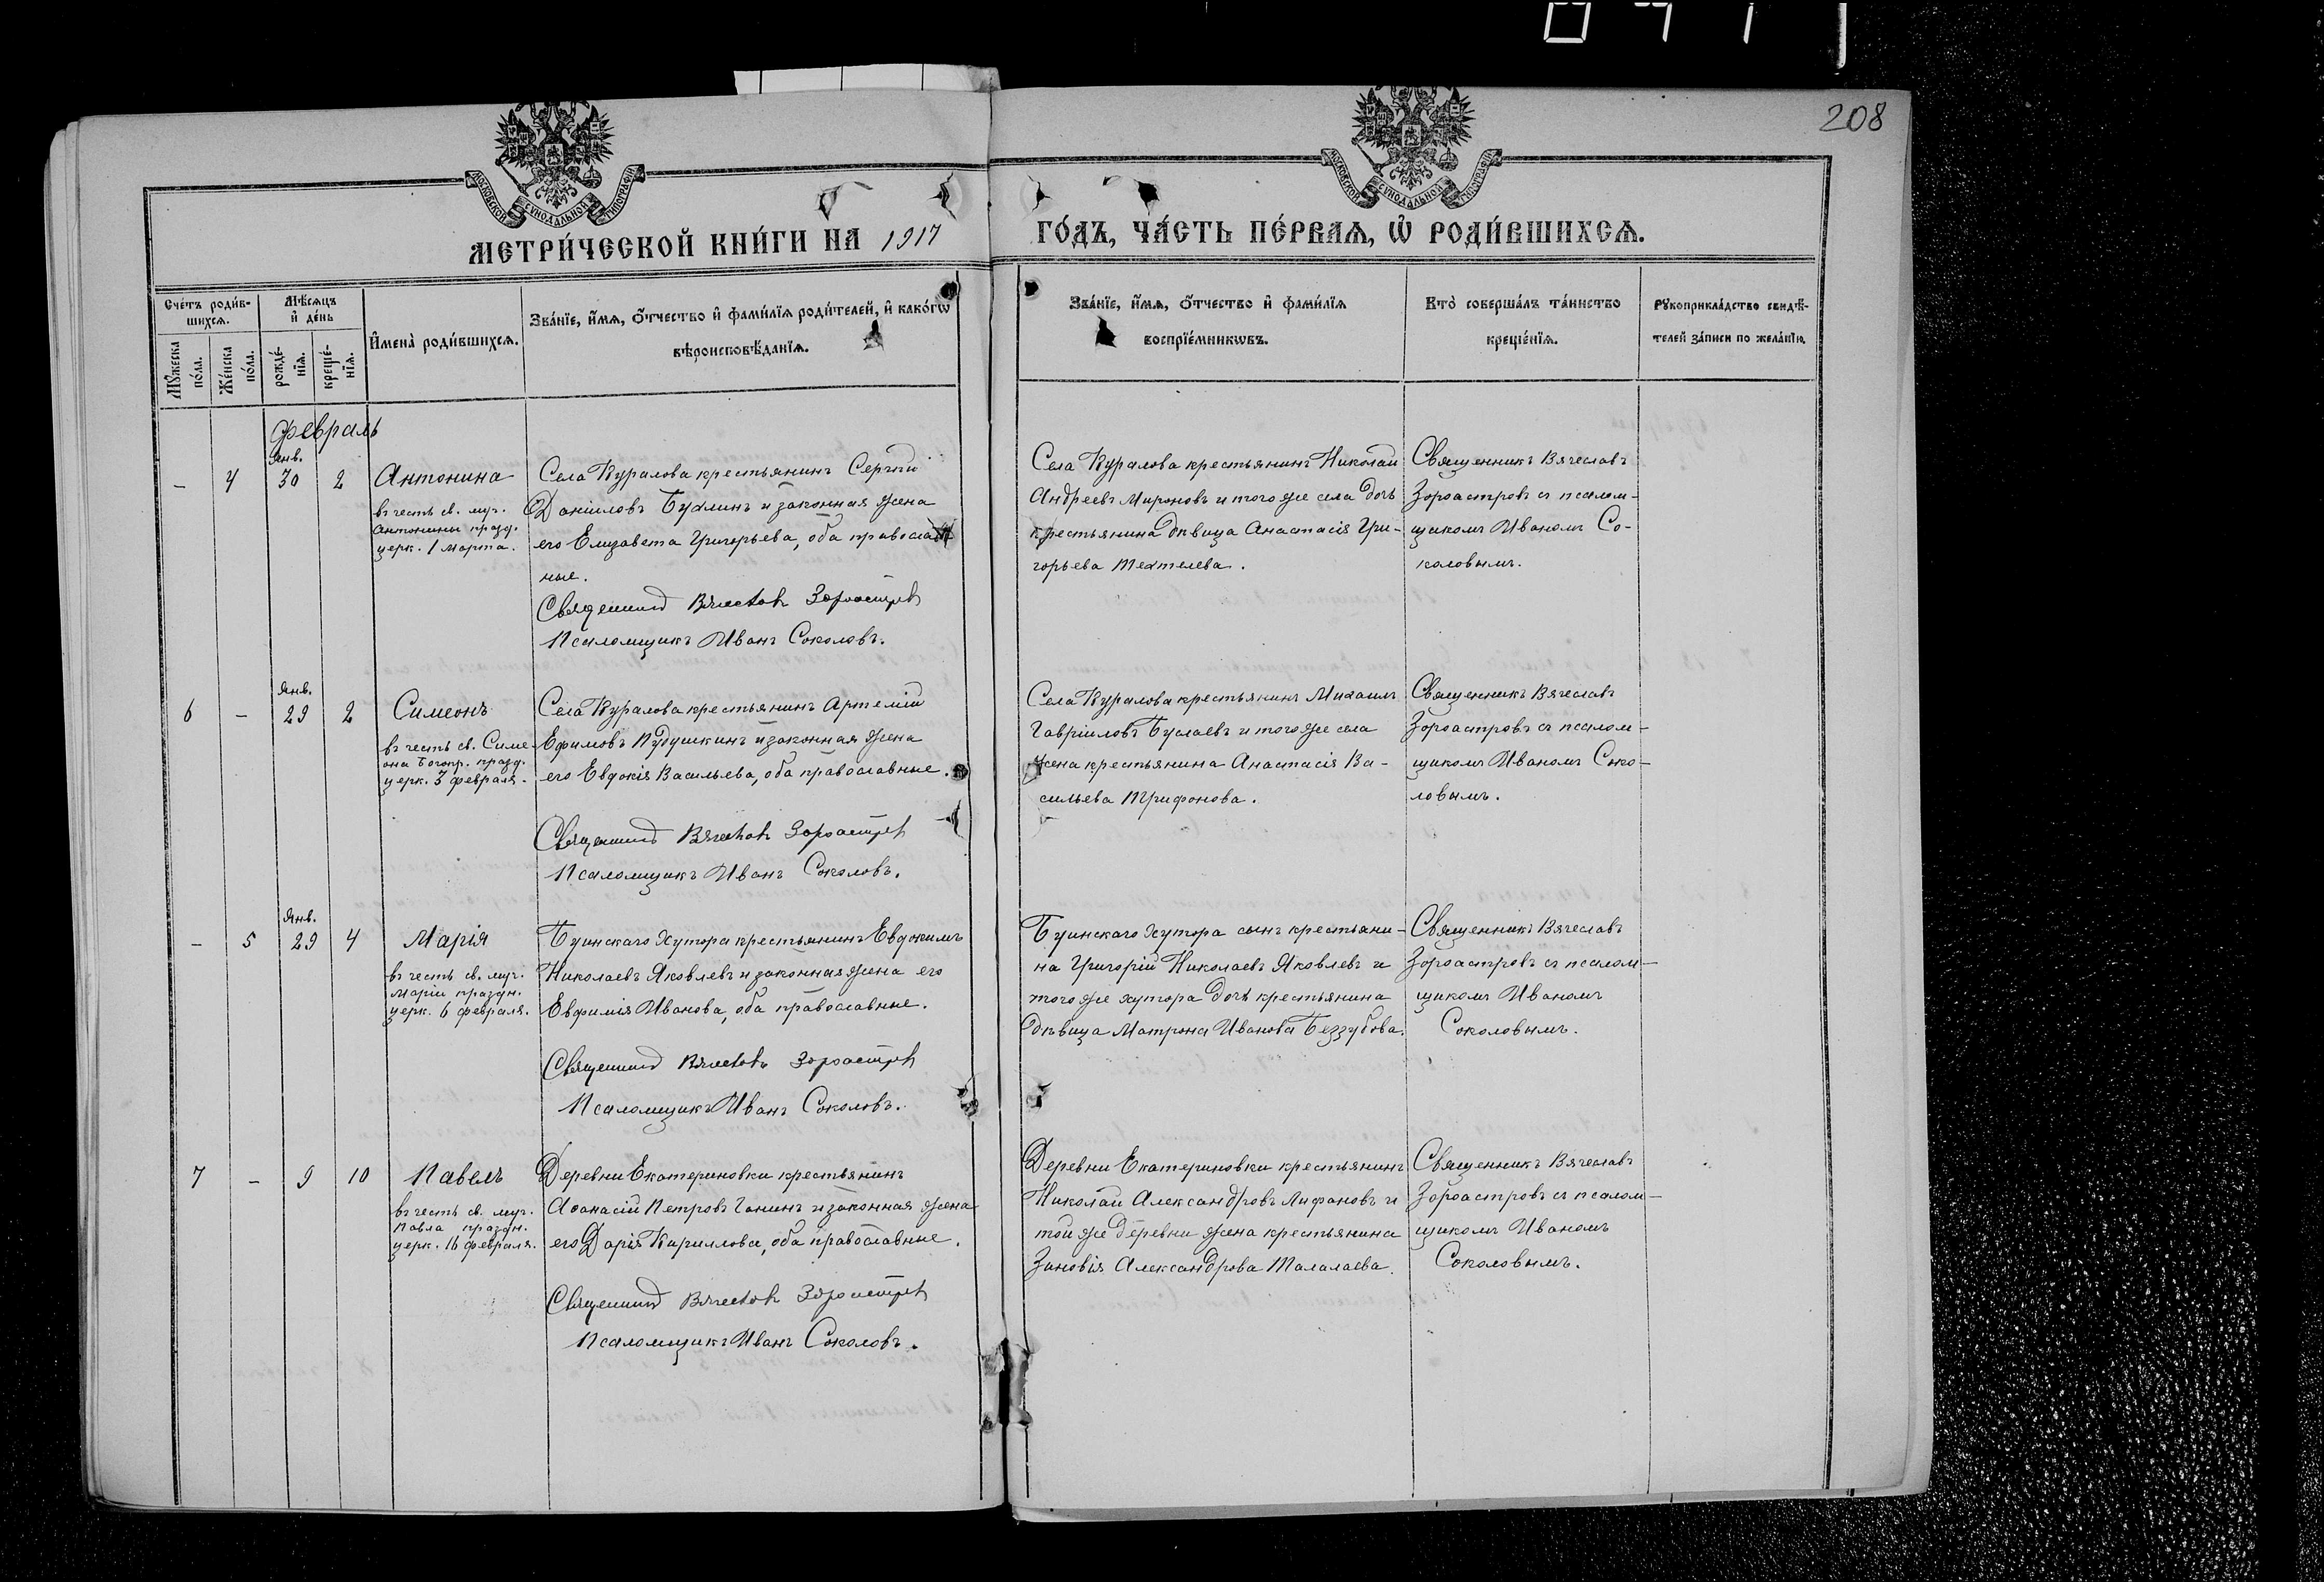 208
МОСКОВСКОЙ СУНОДАЛЬНОЙ ТИПОГРАФІИ
МОСКОВСКОЙ СУНОДАЛЬНОЙ ТИПОГРАФІИ
МЕТРИ́ЧЕСКОЙ КНИ́ГИ НА 1917
ГО́ДЪ, ЧА́СТЬ ПЕ́РВАѦ, Ѡ҆ РОДИ́ВШИХСѦ.
Сче́тъ роди́в-
шихсѧ.
Мꙋ́жеска
по́ла.
Же́нска
по́ла.
Мѣ́сѧцъ
и҆ де́нь
рожде́-
нїѧ.
креще́-
нїѧ.
И҆мена̀ роди́вшихсѧ.
Зва́нїе, и҆́мѧ, ѻ҆́тчество и҆ фами́лїѧ роди́телей, и҆ како́гѡ
вѣроисповѣ́данїѧ.
Зва́нїе, и҆́мѧ, ѻ҆́тчество и҆ фами́лїѧ
воспрїе́мникѡвъ.
Кто̀ соверша́лъ та́инство
креще́нїѧ.
Рꙋкоприкла́дство свидѣ́-
телей за́писи по жела́нїю.
февраль
-
4
Янв.
30
2
Антонина
въ честь св. муч.
Антонины празд.
церк. 1 марта.
Села Куралова крестьянинъ Сергѣй
Даниловъ Бухлинъ и законная жена
его Елизавета Григорьева, оба православ
ные.
Священникъ Вячеславъ Зороастровъ
Псаломщикъ Иванъ Соколовъ.
Села Куралова крестьянинъ Николай
Андреевъ Мироновъ и того же села дочь
крестьянина дѣвица Анастасія Гри-
горьева Техтелева.
Священникъ Вячеславъ
Зороастровъ съ псалом-
щикомъ Иваномъ Со-
коловымъ.
6
-
Янв.
29
2
Симеонъ
въ честь св. Симе-
она Богопр. празд.
церк. 3 февраля.
Села Куралова крестьянинъ Артемій
Ефимовъ Пудушкинъ и законная жена
его Евдокія Васильева, оба православные.
Священникъ Вячеславъ Зороастровъ
Псаломщикъ Иванъ Соколовъ.
Села Куралова крестьянинъ Михаилъ
Гавріиловъ Буслаевъ и того же села
жена крестьянина Анастасія Ва-
сильева Трифонова.
Священникъ Вячеславъ
Зороастровъ съ псалом-
щикомъ Иваномъ Соко-
ловымъ.
-
5
Янв.
29
4
Марія
въ честь св. муч.
Маріи праздн.
церк. 6 февраля.
Буинскаго хутора крестьянинъ Евдокимъ
Николаевъ Яковлевъ и законная жена его
Евфимія Иванова, оба православные.
Священникъ Вячеславъ Зороастровъ
Псаломщикъ Иванъ Соколовъ.
Буинскаго хутора сынъ крестьяни-
на Григорій Николаевъ Яковлевъ и
того же хутора дочь крестьянина
дѣвица Матрона Иванова Беззубова.
Священникъ Вячеславъ
Зороастровъ съ псалом-
щикомъ Иваномъ
Соколовымъ.
7
-
9
10
Павелъ
въ честь св. муч.
Павла праздн.
церк. 16 февраля.
Деревни Екатериновки крестьянинъ
Аѳанасій Петровъ Ганинъ и законная жена
его Дарія Кириллова, оба православные.
Священникъ Вячеславъ Зороастровъ
Псаломщикъ Иванъ Соколовъ.
Деревни Екатериновки крестьянинъ
Николай Александровъ Лифановъ и
той же деревни жена крестьянина
Зиновія Александрова Талалаева.
Священникъ Вячеславъ
Зороастровъ съ псалом-
щикомъ Иваномъ
Соколовымъ.